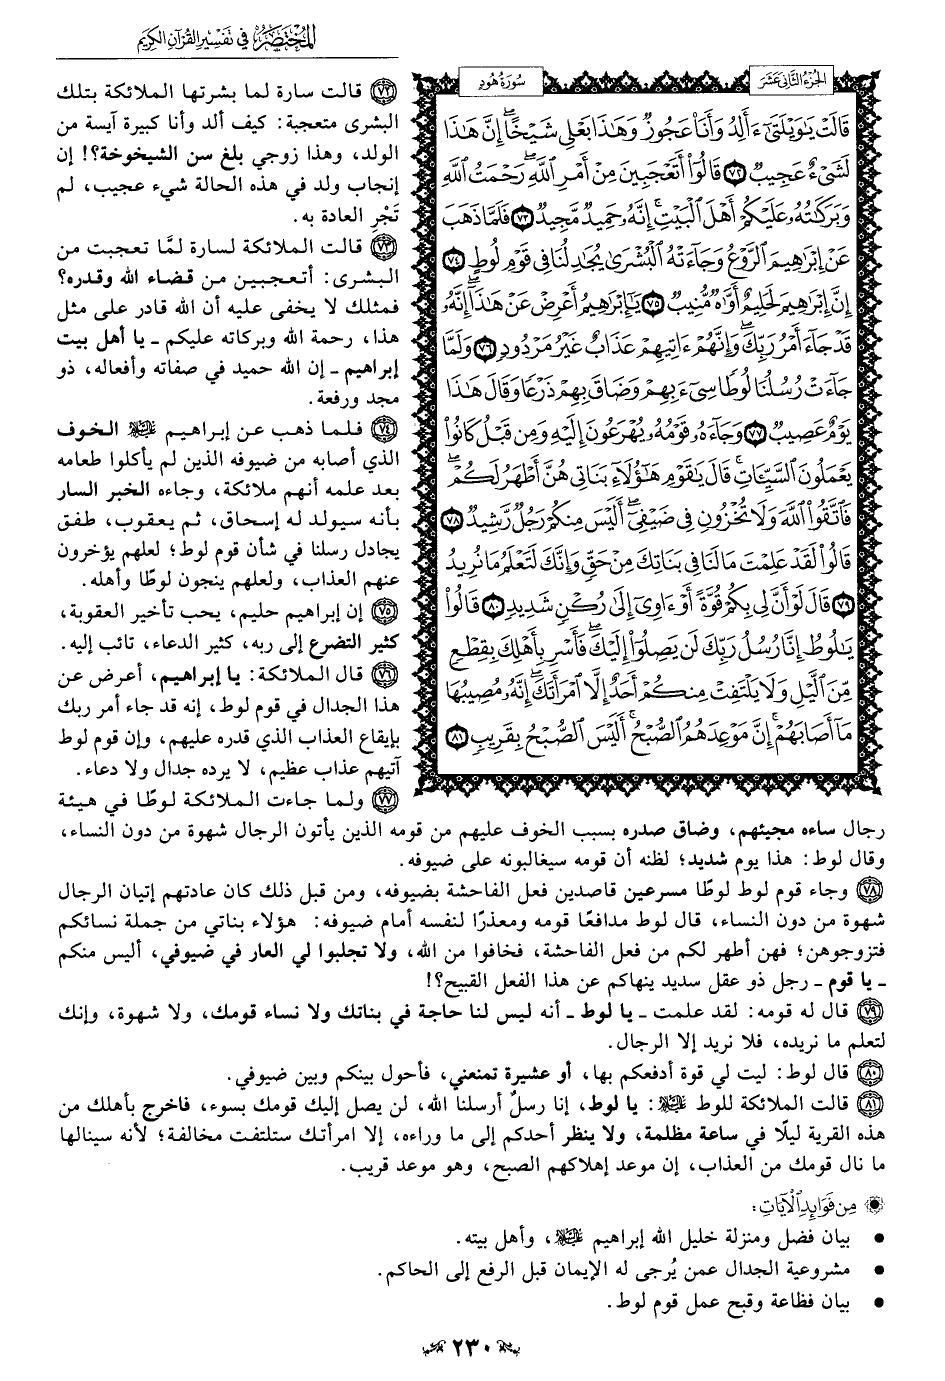 المختصر في تفسير القرآن الكريم
الجزء الثاني عشر
سورة هود
قَالَتْ يَٰوَيْلَتَىٰٓ ءَأَلِدُ وَأَنَا۠ عَجُوزٌ وَهَٰذَا بَعْلِى شَيْخًا ۖ إِنَّ هَٰذَا
لَشَىْءٌ عَجِيبٌ ٧٢ قَالُوٓا۟ أَتَعْجَبِينَ مِنْ أَمْرِ ٱللَّهِ ۖ رَحْمَتُ ٱللَّهِ
وَبَرَكَٰتُهُۥ عَلَيْكُمْ أَهْلَ ٱلْبَيْتِ ۚ إِنَّهُۥ حَمِيدٌ مَّجِيدٌ ٧٣ فَلَمَّا ذَهَبَ
عَنْ إِبْرَٰهِيمَ ٱلرَّوْعُ وَجَآءَتْهُ ٱلْبُشْرَىٰ يُجَٰدِلُنَا فِى قَوْمِ لُوطٍ ٧٤
إِنَّ إِبْرَٰهِيمَ لَحَلِيمٌ أَوَّٰهٌ مُّنِيبٌ ٧٥ يَٰٓإِبْرَٰهِيمُ أَعْرِضْ عَنْ هَٰذَآ ۖ إِنَّهُۥ
قَدْ جَآءَ أَمْرُ رَبِّكَ ۖ وَإِنَّهُمْ ءَاتِيهِمْ عَذَابٌ غَيْرُ مَرْدُودٍ ٧٦ وَلَمَّا
جَآءَتْ رُسُلُنَا لُوطًا سِىٓءَ بِهِمْ وَضَاقَ بِهِمْ ذَرْعًا وَقَالَ هَٰذَا
يَوْمٌ عَصِيبٌ ٧٧ وَجَآءَهُۥ قَوْمُهُۥ يُهْرَعُونَ إِلَيْهِ وَمِن قَبْلُ كَانُوا۟
يَعْمَلُونَ ٱلسَّيِّـَٔاتِ ۚ قَالَ يَٰقَوْمِ هَٰٓؤُلَآءِ بَنَاتِى هُنَّ أَطْهَرُ لَكُمْ ۖ
فَٱتَّقُوا۟ ٱللَّهَ وَلَا تُخْزُونِ فِى ضَيْفِىٓ ۖ أَلَيْسَ مِنكُمْ رَجُلٌ رَّشِيدٌ ٧٨
قَالُوا۟ لَقَدْ عَلِمْتَ مَا لَنَا فِى بَنَاتِكَ مِنْ حَقٍّ وَإِنَّكَ لَتَعْلَمُ مَا نُرِيدُ
٧٩ قَالَ لَوْ أَنَّ لِى بِكُمْ قُوَّةً أَوْ ءَاوِىٓ إِلَىٰ رُكْنٍ شَدِيدٍ ٨٠ قَالُوا۟
يَٰلُوطُ إِنَّا رُسُلُ رَبِّكَ لَن يَصِلُوٓا۟ إِلَيْكَ ۖ فَأَسْرِ بِأَهْلِكَ بِقِطْعٍ
مِّنَ ٱلَّيْلِ وَلَا يَلْتَفِتْ مِنكُمْ أَحَدٌ إِلَّا ٱمْرَأَتَكَ ۖ إِنَّهُۥ مُصِيبُهَا
مَآ أَصَابَهُمْ ۚ إِنَّ مَوْعِدَهُمُ ٱلصُّبْحُ ۚ أَلَيْسَ ٱلصُّبْحُ بِقَرِيبٍ ٨١
٧٢ قالت سارة لما بشرتها الملائكة بتلك
البشرى متعجبة: كيف ألد وأنا كبيرة آيسة من
الولد، وهذا زوجي بلغ سن الشيخوخة؟! إن
إنجاب ولد في هذه الحالة شيء عجيب، لم
تَجْرِ العادة به.
٧٣ قالت الملائكة لسارة لمَّا تعجبت من
البشرى: أتعجبين من قضاء الله وقدره؟
فمثلك لا يخفى عليه أن الله قادر على مثل
هذا، رحمة الله وبركاته عليكم ـ يا أهل بيت
إبراهيم ـ إن الله حميد في صفاته وأفعاله، ذو
مجد ورفعة.
٧٤ فلما ذهب عن إبراهيم ﷺ الخوف
الذي أصابه من ضيوفه الذين لم يأكلوا طعامه
بعد علمه أنهم ملائكة، وجاءه الخبر السار
بأنه سيولد له إسحاق، ثم يعقوب، طفق
يجادل رسلنا في شأن قوم لوط؛ لعلهم يؤخرون
عنهم العذاب، ولعلهم ينجون لوطًا وأهله.
٧٥ إن إبراهيم حليم، يحب تأخير العقوبة،
كثير التضرع إلى ربه، كثير الدعاء، تائب إليه.
٧٦ قال الملائكة: يا إبراهيم، أعرض عن
هذا الجدال في قوم لوط، إنه قد جاء أمر ربك
بإيقاع العذاب الذي قدره عليهم، وإن قوم لوط
آتيهم عذاب عظيم، لا يرده جدال ولا دعاء.
٧٧ ولما جاءت الملائكة لوطًا في هيئة
رجال ساءه مجيئهم، وضاق صدره بسبب الخوف عليهم من قومه الذين يأتون الرجال شهوة من دون النساء،
وقال لوط: هذا يوم شديد؛ لظنه أن قومه سيغالبونه على ضيوفه.
٧٨ وجاء قوم لوط لوطًا مسرعين قاصدين فعل الفاحشة بضيوفه، ومن قبل ذلك كان عادتهم إتيان الرجال
شهوة من دون النساء، قال لوط مدافعًا قومه ومعذرًا لنفسه أمام ضيوفه: هؤلاء بناتي من جملة نسائكم
فتزوجوهن؛ فهن أطهر لكم من فعل الفاحشة، فخافوا من الله، ولا تجلبوا لي العار في ضيوفي، أليس منكم
ـ يا قوم ـ رجل ذو عقل سديد ينهاكم عن هذا الفعل القبيح؟!
٧٩ قال له قومه: لقد علمت ـ يا لوط ـ أنه ليس لنا حاجة في بناتك ولا نساء قومك، ولا شهوة، وإنك
لتعلم ما نريده، فلا نريد إلا الرجال.
٨٠ قال لوط: ليت لي قوة أدفعكم بها، أو عشيرة تمنعني، فأحول بينكم وبين ضيوفي.
٨١ قالت الملائكة للوط ﷺ: يا لوط، إنا رسلٌ أرسلنا الله، لن يصل إليك قومك بسوء، فاخرج بأهلك من
هذه القرية ليلًا في ساعة مظلمة، ولا ينظر أحدكم إلى ما وراءه، إلا امرأتك ستلتفت مخالفة؛ لأنه سينالها
ما نال قومك من العذاب، إن موعد إهلاكهم الصبح، وهو موعد قريب.
من فوائد الآيات:
• بيان فضل ومنزلة خليل الله إبراهيم ﷺ، وأهل بيته.
• مشروعية الجدال عمن يُرجى له الإيمان قبل الرفع إلى الحاكم.
• بيان فظاعة وقبح عمل قوم لوط.
٢٣٠